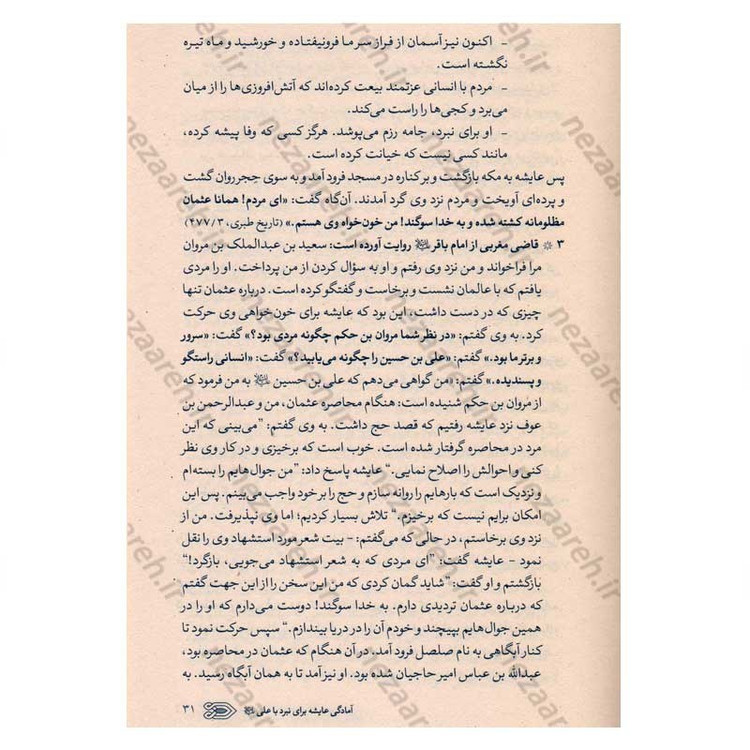 - اکنون نیز آسمان از فراز سر ما فرونیفتاده و خورشید و ماه تیره
نگشته است.
- مردم با انسانی عزتمند بیعت کرده‌اند که آتش‌افروزی‌ها را از میان
می‌برد و کجی‌ها را راست می‌کند.
- او برای نبرد، جامه رزم می‌پوشد. هرگز کسی که وفا پیشه کرده،
مانند کسی نیست که خیانت کرده است.
پس عایشه به مکه بازگشت و بر کناره در مسجد فرود آمد و به سوی حِجر روان گشت
و پرده‌ای آویخت و مردم نزد وی گرد آمدند. آن‌گاه گفت: «ای مردم! همانا عثمان
مظلومانه کشته شده و به خدا سوگند! من خون‌خواه وی هستم.» (تاریخ طبری، ۴۷۷/۳)
۳ قاضی مغربی از امام باقر روایت آورده است: سعید بن عبدالملک بن مروان
مرا فراخواند و من نزد وی رفتم و او به سؤال کردن از من پرداخت. او را مردی
یافتم که با عالمان نشست و برخاست و گفتگو کرده است. درباره عثمان تنها
چیزی که در دست داشت، این بود که عایشه برای خون‌خواهی وی حرکت
کرد. به وی گفتم: «در نظر شما مروان بن حکم چگونه مردی بود؟» گفت: «سرور
و برتر ما بود.» گفتم: «علی بن حسین را چگونه می‌یابید؟» گفت: «انسانی راستگو
و پسندیده.» گفتم: «من گواهی می‌دهم که علی بن حسین به من فرمود که
از مروان بن حکم شنیده است: هنگام محاصره عثمان، من و عبدالرحمن بن
عوف نزد عایشه رفتیم که قصد حج داشت. به وی گفتم: "می‌بینی که این
مرد در محاصره گرفتار شده است. خوب است که برخیزی و در کار وی نظر
کنی و احوالش را اصلاح نمایی." عایشه پاسخ داد: "من جوال‌هایم را بسته‌ام
و نزدیک است که بارهایم را روانه سازم و حج را بر خود واجب می‌بینم. پس این
امکان برایم نیست که برخیزم." تلاش بسیار کردیم؛ اما وی نپذیرفت. من از
نزد وی برخاستم، در حالی که می‌گفتم: – بیت شعر مورد استشهاد وی را نقل
نمود – عایشه گفت: "ای مردی که به شعر استشهاد می‌جویی، بازگرد!"
بازگشتم و او گفت: "شاید گمان کردی که من این سخن را از این جهت گفتم
که درباره عثمان تردیدی دارم. به خدا سوگند! دوست می‌دارم که او را در
همین جوال‌هایم بپیچند و خودم آن را در دریا بیندازم." سپس حرکت نمود تا
کنار آبگاهی به نام صلصل فرود آمد. در آن هنگام که عثمان در محاصره بود،
عبدالله بن عباس امیر حاجیان شده بود. او نیز آمد تا به همان آبگاه رسید. به
آمادگی عایشه برای نبرد با علی ۳۱
nezaareh.ir